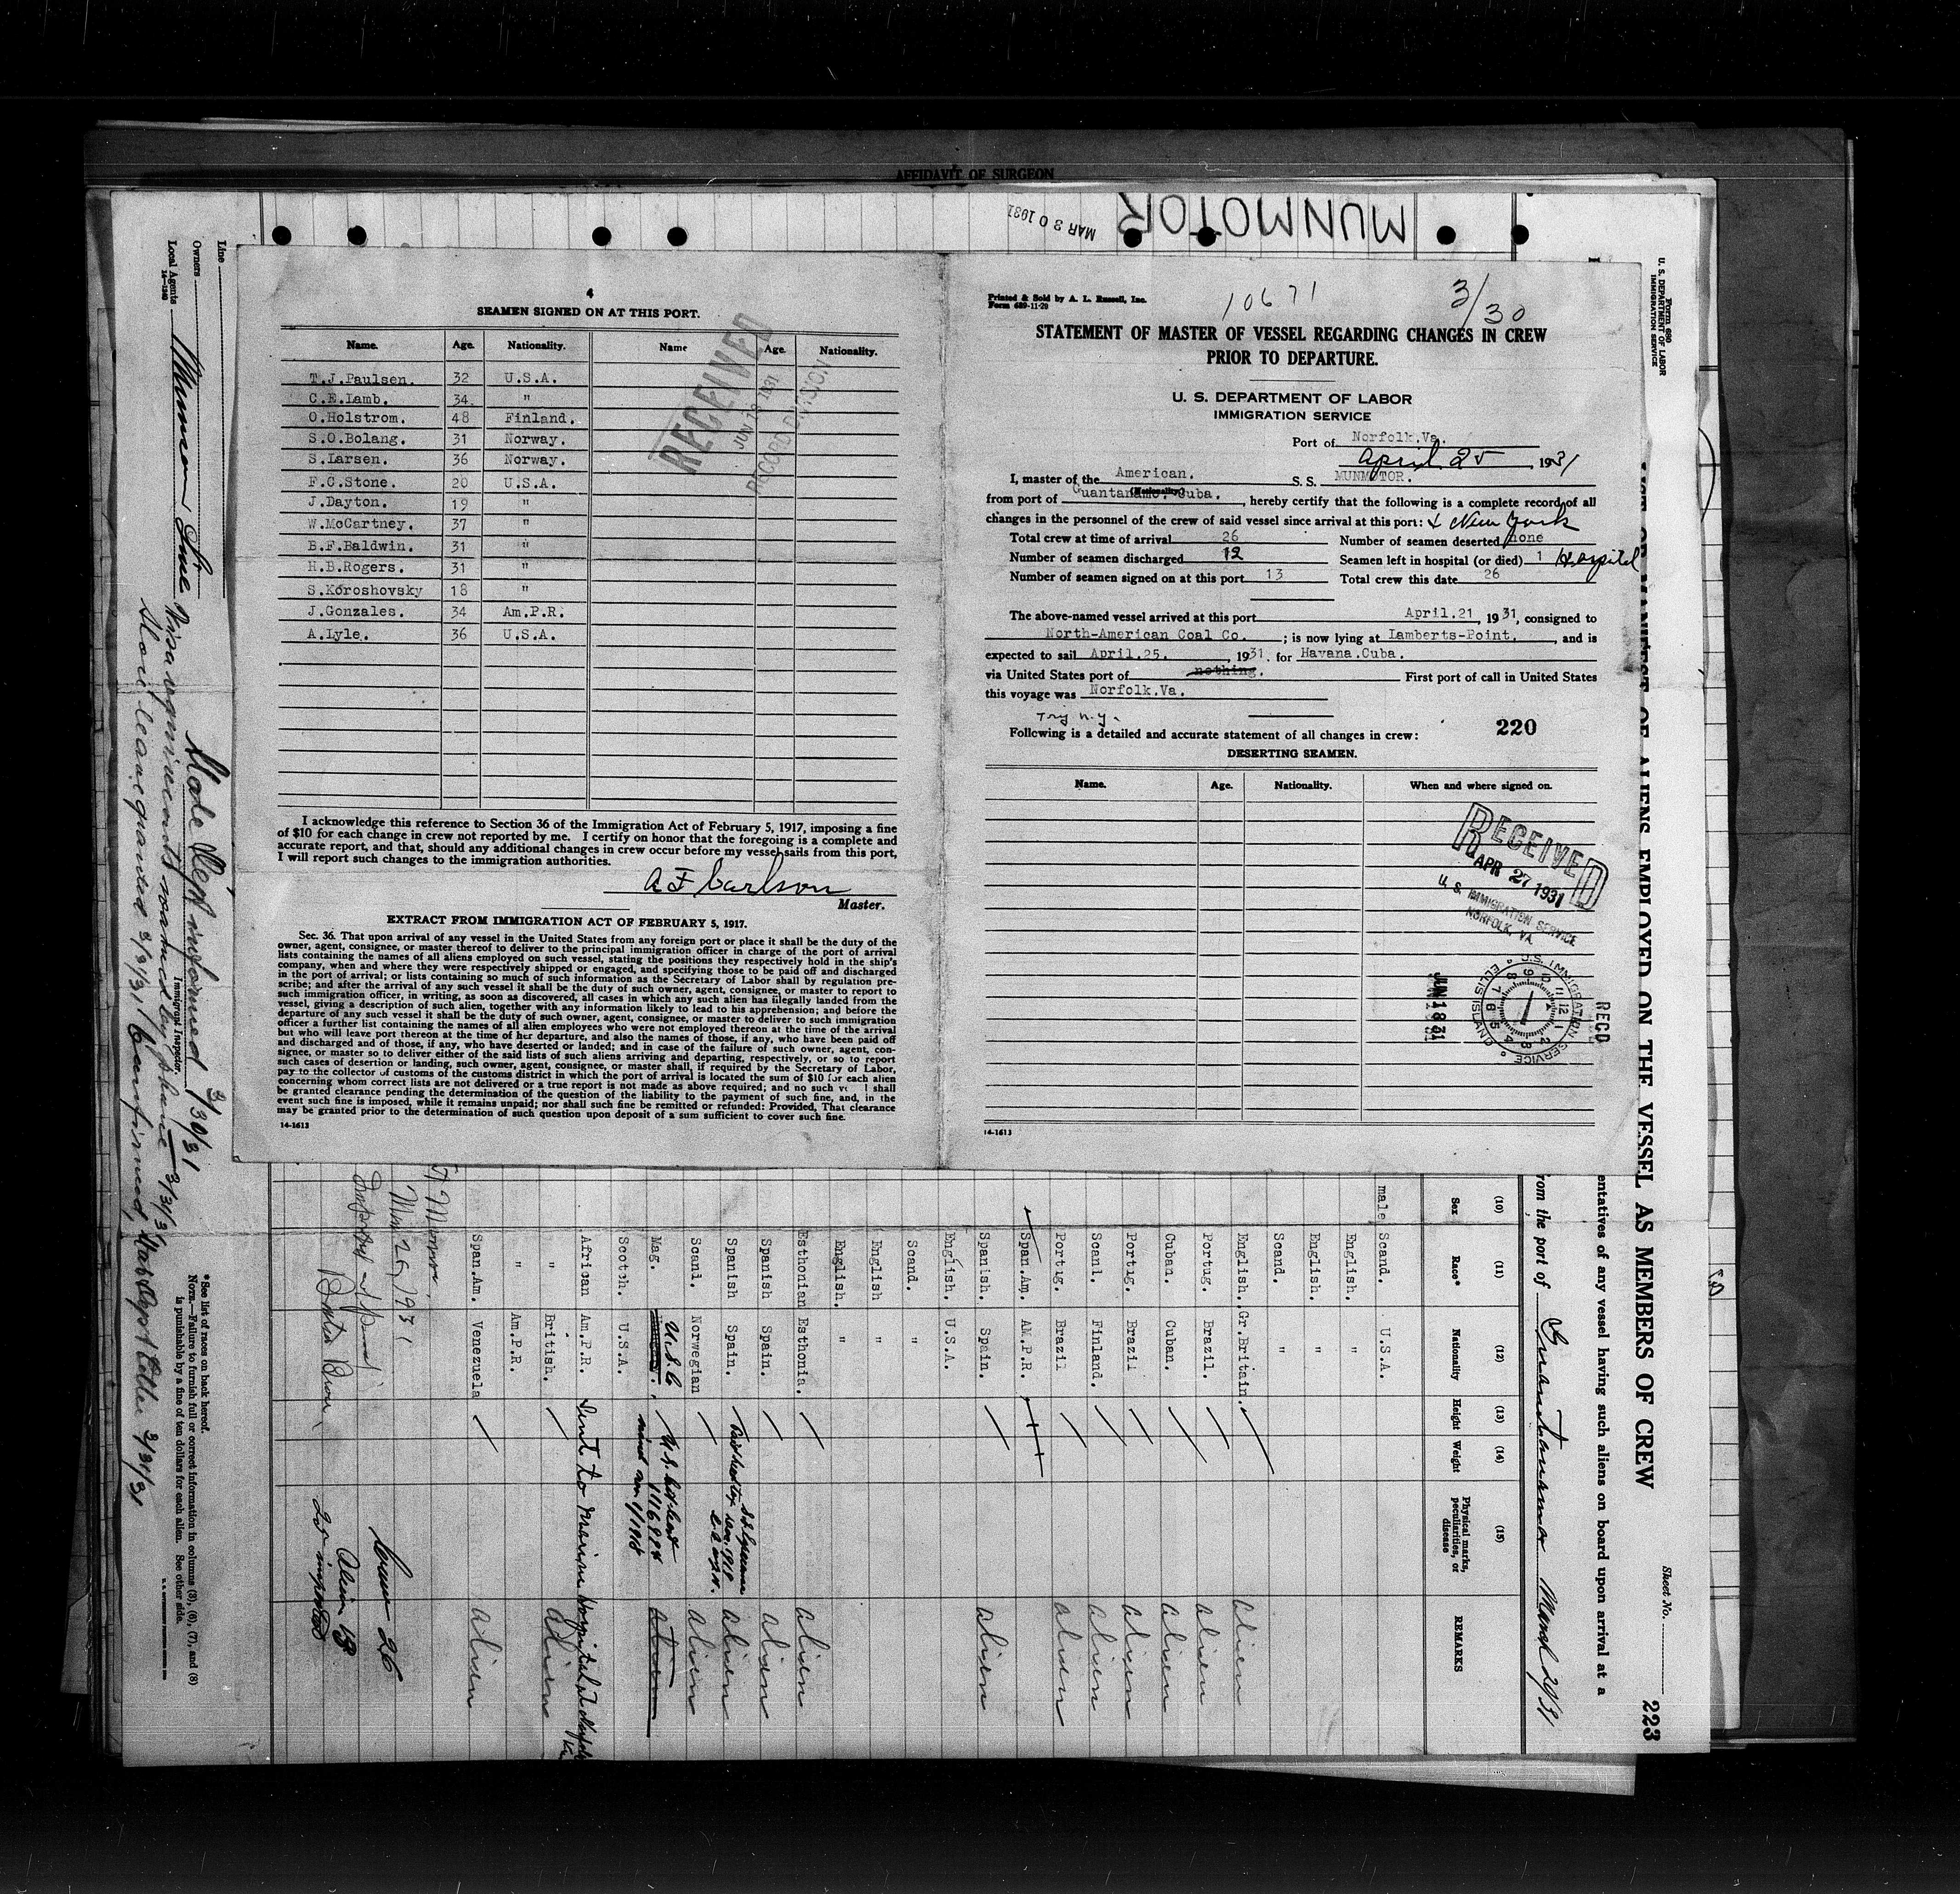 AFFIDAVIT OF SURGEON
MUNMOTOR
MAR 30 1931
4
SEAMEN SIGNED ON AT THIS PORT.
Name. Age. Nationality. Name Age. Nationality.
T.J.Paulsen. 32 U.S.A.
C.E.Lamb. 34. "
O.Holstrom. 48 Finland.
S.O.Bolang. 31 Norway.
S.Larsen. 36 Norway.
F.C.Stone. 20 U.S.A.
J.Dayton. 19 "
W.McCartney. 37 "
B.F.Baldwin. 31 "
H.B.Rogers. 31 "
S.Koroshovsky 18 "
J.Gonzales. 34 Am.P.R.
A.Lyle. 36 U.S.A.
RECEIVED
JUN 1931
RECORD DIVISION
I acknowledge this reference to Section 36 of the Immigration Act of February 5, 1917, imposing a fine
of $10 for each change in crew not reported by me. I certify on honor that the foregoing is a complete and
accurate report, and that, should any additional changes in crew occur before my vessel sails from this port,
I will report such changes to the immigration authorities.
A F Carlson
Master.
EXTRACT FROM IMMIGRATION ACT OF FEBRUARY 5, 1917.
Sec. 36. That upon arrival of any vessel in the United States from any foreign port or place it shall be the duty of the
owner, agent, consignee, or master thereof to deliver to the principal immigration officer in charge of the port of arrival
lists containing the names of all aliens employed on such vessel, stating the positions they respectively hold in the ship's
company, when and where they were respectively shipped or engaged, and specifying those to be paid off and discharged
in the port of arrival; or lists containing so much of such information as the Secretary of Labor shall by regulation pre-
scribe; and after the arrival of any such vessel it shall be the duty of such owner, agent, consignee, or master to report to
such immigration officer, in writing, as soon as discovered, all cases in which any such alien has illegally landed from the
vessel, giving a description of such alien, together with any information likely to lead to his apprehension; and before the
departure of any such vessel it shall be the duty of such owner, agent, consignee, or master to deliver to such immigration
officer a further list containing the names of all alien employees who were not employed thereon at the time of the arrival
but who will leave port thereon at the time of her departure, and also the names of those, if any, who have been paid off
and discharged and of those, if any, who have deserted or landed; and in case of the failure of such owner, agent, con-
signee, or master so to deliver either of the said lists of such aliens arriving and departing, respectively, or so to report
such cases of desertion or landing, such owner, agent, consignee, or master shall, if required by the Secretary of Labor,
pay to the collector of customs of the customs district in which the port of arrival is located the sum of $10 for each alien
concerning whom correct lists are not delivered or a true report is not made as above required; and no such ve l shall
be granted clearance pending the determination of the question of the liability to the payment of such fine, and, in the
event such fine is imposed, while it remains unpaid; nor shall such fine be remitted or refunded: Provided, That clearance
may be granted prior to the determination of such question upon deposit of a sum sufficient to cover such fine.
14-1613
Printed & Sold by A. L. Russell, Inc.
Form 689-11-29
10671
3/30
STATEMENT OF MASTER OF VESSEL REGARDING CHANGES IN CREW
PRIOR TO DEPARTURE.
U. S. DEPARTMENT OF LABOR
IMMIGRATION SERVICE
Port of Norfolk.Va.
April 25, 1931
I, master of the American. S. S. MUNMOTOR.
(Nationality)
from port of Guantanamo. Cuba., hereby certify that the following is a complete record of all
changes in the personnel of the crew of said vessel since arrival at this port: & New York
Total crew at time of arrival 26 Number of seamen deserted none
Number of seamen discharged 12 Seamen left in hospital (or died) 1 Hospital
Number of seamen signed on at this port 13 Total crew this date 26
The above-named vessel arrived at this port April.21, 1931, consigned to
North-American Coal Co. ; is now lying at Lamberts-Point., and is
expected to sail April.25., 1931. for Havana.Cuba.
via United States port of nothing. First port of call in United States
this voyage was Norfolk.Va.
N.Y.
Following is a detailed and accurate statement of all changes in crew: 220
DESERTING SEAMEN.
Name. Age. Nationality. When and where signed on.
RECEIVED
APR 27 1931
U. S. IMMIGRATION SERVICE
NORFOLK, VA.
REC'D
U.S. IMMIGRATION SERVICE
ELLIS ISLAND
JUN 18 31
14-1613
Form 680
U. S. DEPARTMENT OF LABOR
IMMIGRATION SERVICE
OF ALIENS EMPLOYED ON THE VESSEL AS MEMBERS OF CREW
Sheet No. 223
entatives of any vessel having such aliens on board upon arrival at a
from the port of Guantanamo March 29/31
(10) (11) (12) (13) (14) (15)
Sex Race* Nationality Height Weight Physical marks, peculiarities, or disease REMARKS
male Scand. U.S.A.
English. "
English. "
Scand. "
English. Gr.Britain. alien
Portug. Brazil. alien
Cuban. Cuban. alien
Portig. Brazil alien
Scanl. Finland. alien
Portig. Brazil alien
Span.Am. AM.P.R.
Spanish. Spain. alien
English. U.S.A.
Scand. "
English "
English. "
Esthonian Esthonia. alien
Spanish Spain. alien
Spanish Spain. alien
Scanl. Norwegian alien
Mag. U.S.C. alien
Scotch. U.S.A.
African Am.P.R. Sent to Marine Hospital at
" British. alien
" Am.P.R.
Span.Am. Venezuela alien
Crew 26
Alien 13
25 inspected
*See list of races on back hereof.
NOTE.—Failure to furnish full or correct information in columns (3), (6), (7), and (8)
is punishable by a fine of ten dollars for each alien. See other side.
Immigrant Inspector.
Line
Owners
Local Agents Munson Line
14-1240
3/30/31
Visa requirements waived by phone 3/31/31